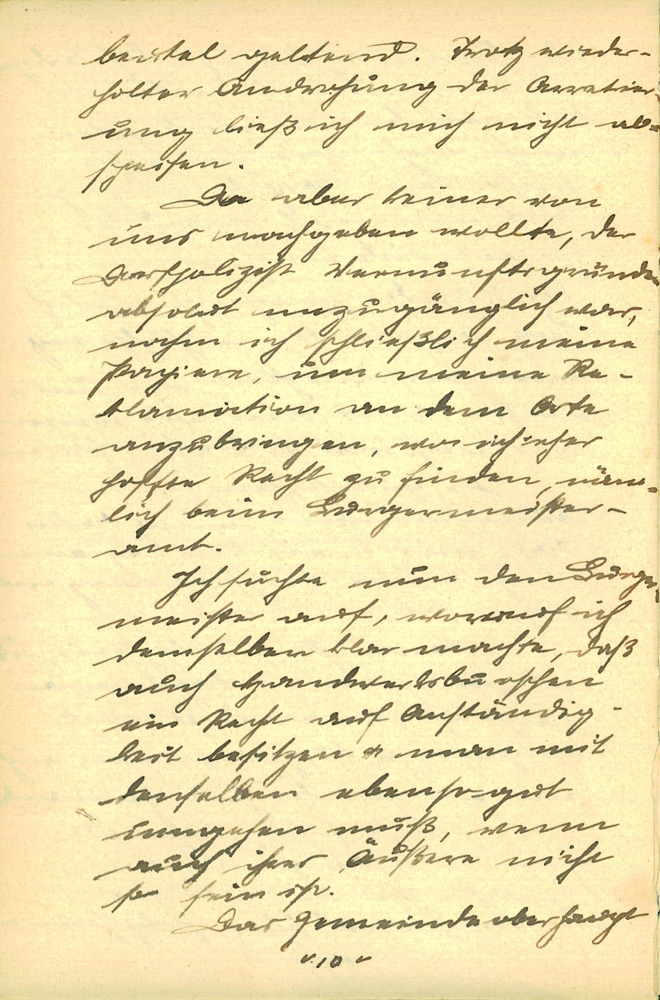 beutel geltend. Trotz wieder-
holter Androhung der Arretier
ung ließ ich mich nicht ab-
speisen.
Da aber keiner von
uns nachgeben wollte, der
Dorfpolizist Vernunftsgründen
absolut unzugänglich war,
nahm ich schließlich meine
Papiere, um meine Re-
klamation an dem Orte
anzubringen, wo ich eher
hoffte Recht zu finden, näm-
lich beim Burgermeister-
amt.
Ich suchte nun den Burger
meister auf, worauf ich
demselben klar machte, daß
auch Handwerksburschen
ein Recht auf Anständig-
keit besitzen & man mit
denselben ebenso gut
umgehen muß, wenn
auch ihr Äußere nicht
so fein ist.
Das Gemeindeoberhaupt
10